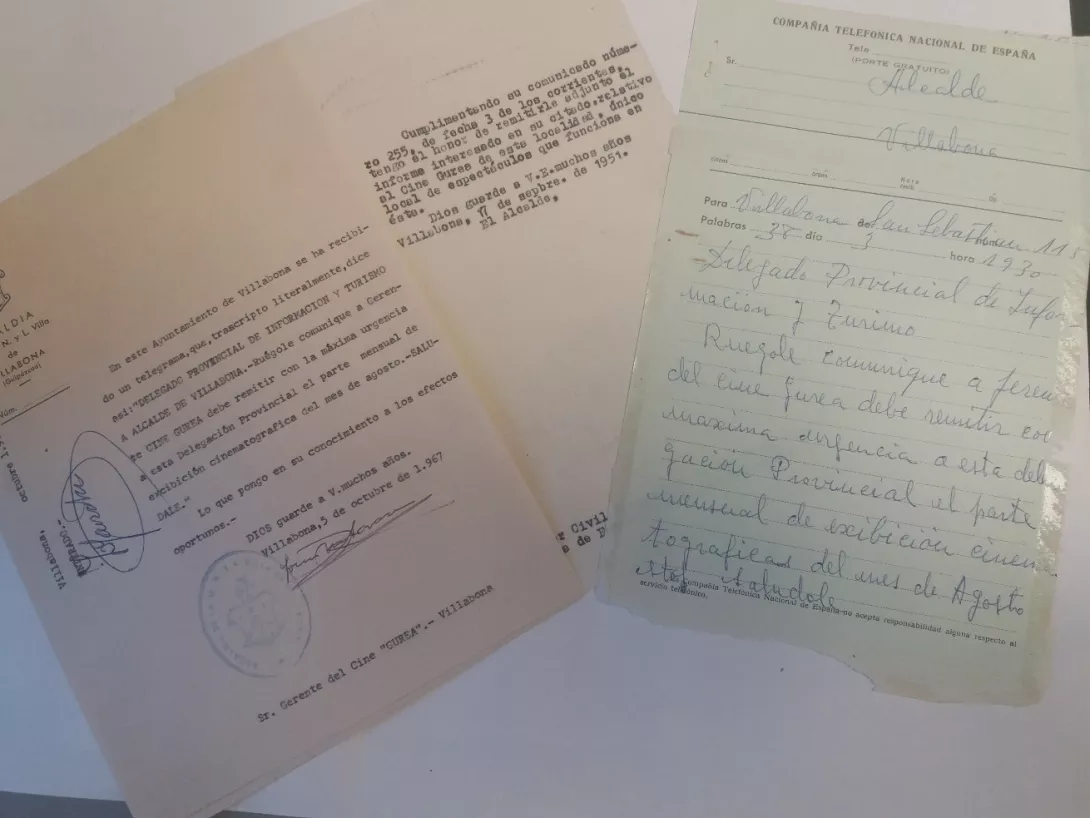 ALDIA
N. y L. Villa
de
LLABONA
(Guipúzcoa)
Núm.
En este Ayuntamiento de Villabona se ha recibi-
do un telegrama, que, trascripto literalmente, dice
así: "DELEGADO PROVINCIAL DE INFORMACION Y TURISMO
A ALCALDE DE VILLABONA.-Ruégole comunique a Geren-
te CINE GUREA debe remitir con la máxima urgencia
a esta Delegación Provincial el parte mensual de
exhibición cinematografica del mes de agosto.-SALU-
DALE."
Lo que pongo en su conocimiento a los efectos
oportunos.-
DIOS guarde a V. muchos años.
Villabona, 5 de octubre de 1.967
Villabona, octubre 1.9
ENTERADO.-
Sr. Gerente del Cine "GUREA".- Villabona
Cumplimentando su comunicado núme-
ro 255, de fecha 3 de los corrientes,
tengo el honor de remitirle adjunto el
informe interesado en su citado, relativo
al Cine Gurea de esta localidad, único
local de espectáculos que funciona en
ésta.
Dios guarde a V.E. muchos años
Villabona, 17 de sepbre. de 1951.
El Alcalde,
r Civil
COMPAÑIA TELEFONICA NACIONAL DE ESPAÑA
Tele
(PORTE GRATUITO)
Sr. Alcalde
Villabona
Para Villabona de San Sebastian 115
Palabras 38 día 3 hora 1930
Delegado Provincial de Infor-
mación y Turimo
Ruegole comunique a Geren
del cine Gurea debe remitir con
maxima urgencia a esta dele
gación Provincial el parte
mensual de exibición cinem
tograficas del mes de Agosto
Saludole
Compañía Telefónica Nacional de España no acepta responsabilidad alguna respecto al
servicio telefónico.